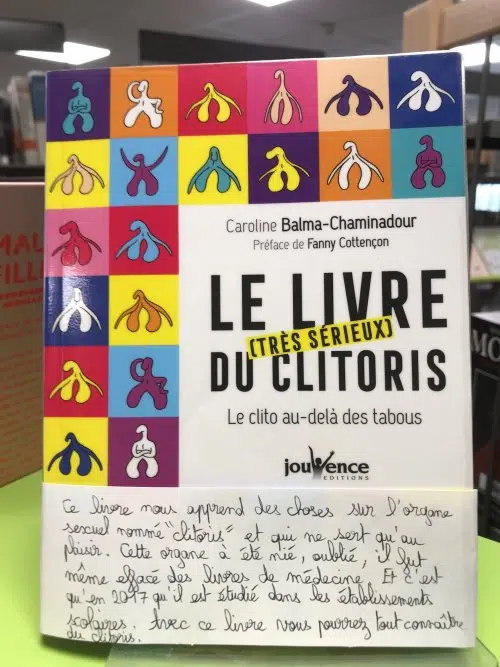 Caroline Balma-Chaminadour
Préface de Fanny Cottençon
LE LIVRE
(TRÈS SÉRIEUX)
DU CLITORIS
Le clito au-delà des tabous
jouVence
EDITIONS
Ce livre nous apprend des choses sur l'organe
sexuel nommé "clitoris" et qui ne sert qu'au
plaisir. Cette organe à été nié, oublié, il fut
même effacé des livres de médecine. Et c'est
qu'en 2017 qu'il est étudié dans les établissements
scolaires. Avec ce livre vous pourrez tout connaître
du clitoris.
MAL
FILL